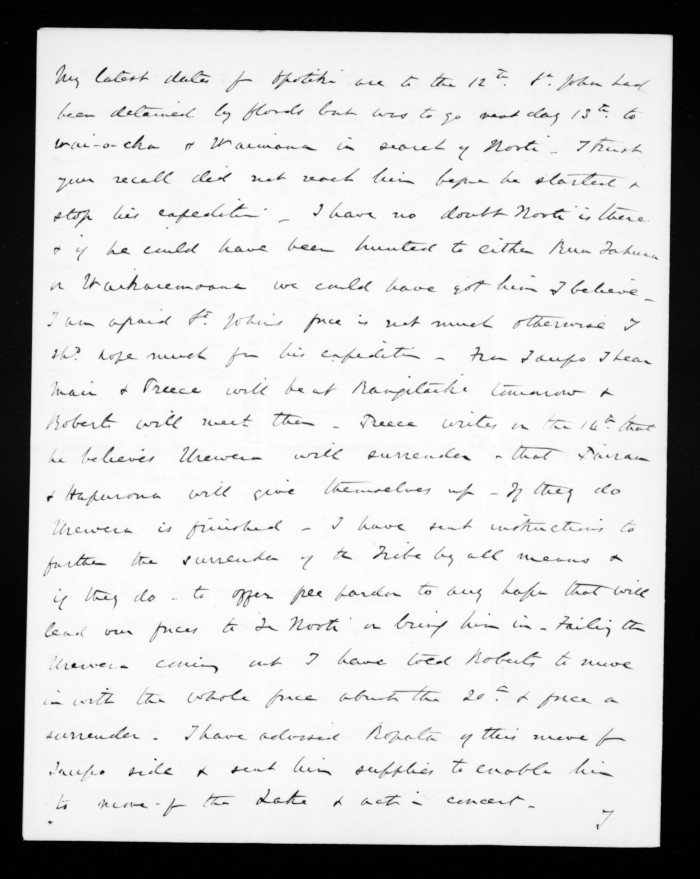 My latest dates f Opotiki are to the 12th. St. John had
been detained by floods but was to go next day 13th to
Wai-o-eka & Waimana in search of Kooti - I trust
your recall did not reach him before he started &
stop his expedition - I have no doubt Kooti is there
& if he could have been hunted to either Rua Tahuna
or Waikaremoana we could have got him I believe -
I am afraid St. John's force is not much otherwise I
shd. hope much from his expedition - From Taupo I hear
Mair & Preece will be at Rangitaiki tomorrow &
Roberts will meet them - Preece writes on the 14th that
he believes Urewera will surrender & that
& Hapurona will give themselves up - If they do
Urewera is finished - I have sent instructions to
further the surrender of the Tribe by all means &
if they do - to offer free pardon to any hapu that will
lead our forces to Te Kooti or bring him in - Failing the
Urewera coming out I have told Roberts to move
in with the whole force about the 20th & force a
surrender - I have advised Ropata of this move f
Taupo side & sent him supplies to enable him
to move f the Lake & act in concert -
I